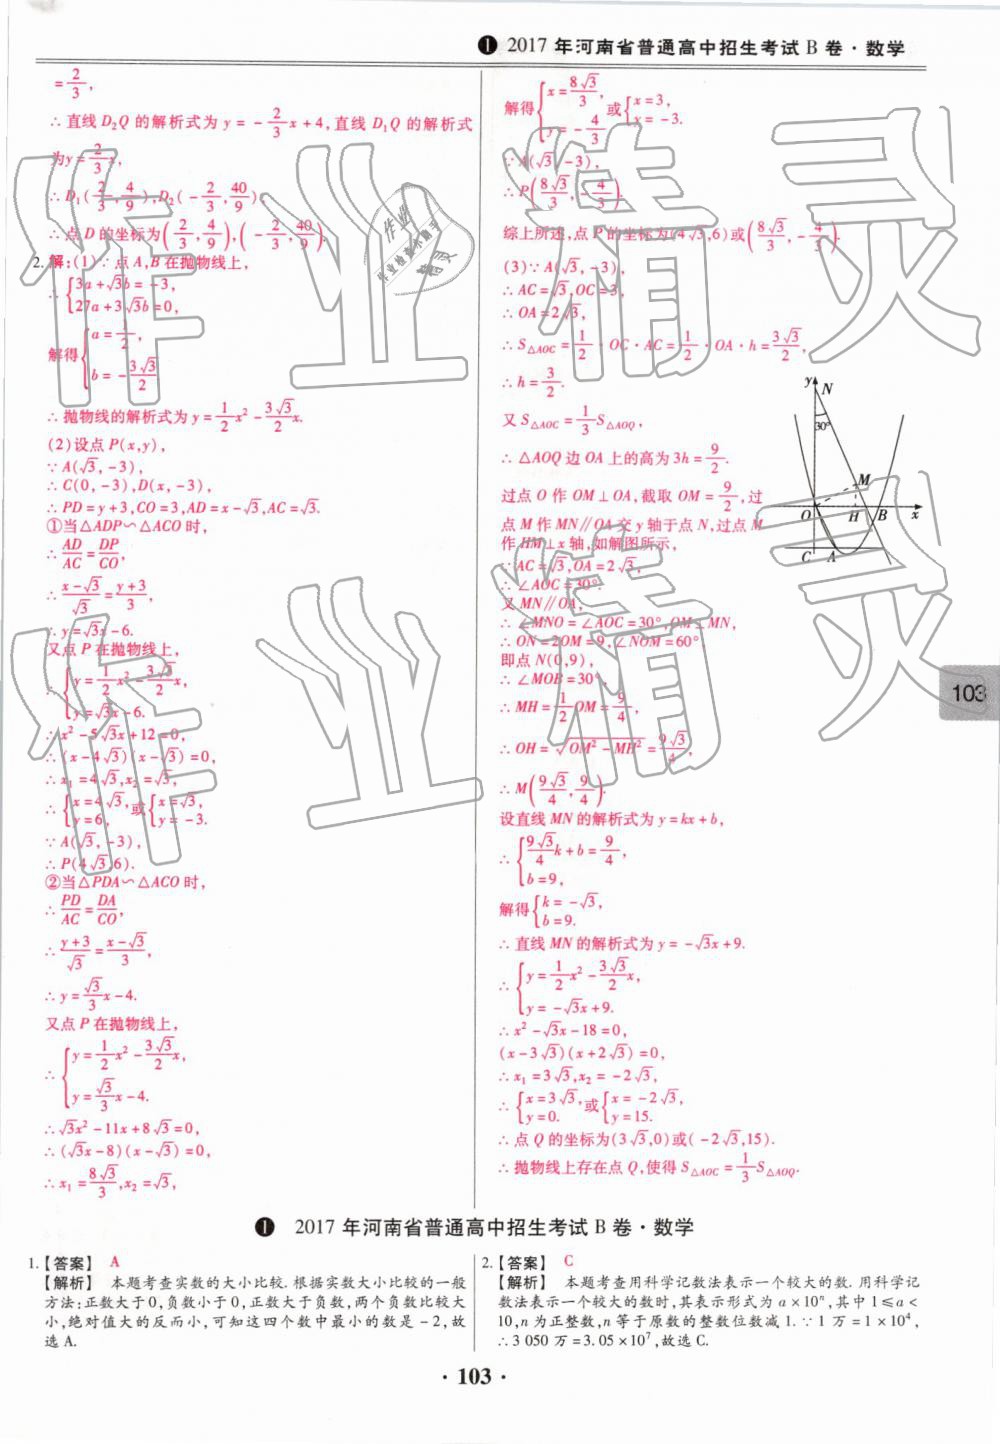 ❶ 2017 年河南省普通高中招生考试 B 卷·数学
=2/3,
∴直线 D₂Q 的解析式为 y = -2/3x+4,直线 D₁Q 的解析式
为y=2/3x,
∴D₁(2/3,4/9),D₂(-2/3,40/9).
∴点 D 的坐标为(2/3,4/9),(-2/3,40/9).
2. 解:(1)∵点 A,B 在抛物线上,
∴{3a+√3b=-3,
27a+3√3b=0,
解得{a=1/2,
b=-3√3/2
∴抛物线的解析式为 y=1/2x²-3√3/2x.
(2)设点 P(x,y),
∵A(√3,-3),
∴C(0,-3),D(x,-3),
∴PD=y+3,CO=3,AD=x-√3,AC=√3.
①当△ADP∽△ACO 时,
∴AD/AC=DP/CO,
∴(x-√3)/√3=(y+3)/3,
∴y=√3x-6.
又点 P 在抛物线上,
∴{y=1/2x²-3√3/2x,
y=√3x-6.
∴x²-5√3x+12=0,
∴(x-4√3)(x-√3)=0,
∴x₁=4√3,x₂=√3,
∴{x=4√3,
y=6,或{x=√3,
y=-3.
∵A(√3,-3),
∴P(4√3,6).
②当△PDA∽△ACO 时,
∴PD/AC=DA/CO,
∴(y+3)/√3=(x-√3)/3,
∴y=√3/3x-4.
又点 P 在抛物线上,
∴{y=1/2x²-3√3/2x,
y=√3/3x-4.
∴√3x²-11x+8√3=0,
∴(√3x-8)(x-√3)=0,
∴x₁=8√3/3,x₂=√3,
解得{x=8√3/3,
y=-4/3 或{x=3,
x=-3.
∵A(√3,-3),
∴P(8√3/3,-4/3).
综上所述,点 P 的坐标为(4√3,6)或(8√3/3,-4/3).
(3)∵A(√3,-3),
∴AC=√3,OC=3,
∴OA=2√3,
∴S△AOC=1/2·OC·AC=1/2·OA·h=3√3/2,
∴h=3/2.
又 S△AOC=1/3S△AOQ,
∴△AOQ 边 OA 上的高为 3h=9/2.
过点 O 作 OM⊥OA,截取 OM=9/2,过
点 M 作 MN∥OA 交 y 轴于点 N,过点 M
作 HM⊥x 轴,如解图所示,
∵AC=√3,OA=2√3,
∴∠AOC=30°.
又 MN∥OA,
∴∠MNO=∠AOC=30°,OM⊥MN,
∴ON=2OM=9,∠NOM=60°,
即点 N(0,9),
∴∠MOB=30°,
∴MH=1/2OM=9/4,
∴OH=√(OM²-MH²)=9√3/4,
∴M(9√3/4,9/4).
设直线 MN 的解析式为 y=kx+b,
∴{9√3/4k+b=9/4,
b=9,
解得{k=-√3,
b=9.
∴直线 MN 的解析式为 y=-√3x+9.
∴{y=1/2x²-3√3/2x,
y=-√3x+9.
∴x²-√3x-18=0,
(x-3√3)(x+2√3)=0,
∴x₁=3√3,x₂=-2√3,
∴{x=3√3,
y=0.或{x=-2√3,
y=15.
∴点 Q 的坐标为(3√3,0)或(-2√3,15).
∴抛物线上存在点 Q,使得 S△AOC=1/3S△AOQ.
y
N
30°
M
O
H
B
x
C
A
103
❶ 2017 年河南省普通高中招生考试 B 卷·数学
1.【答案】 A
【解析】 本题考查实数的大小比较.根据实数大小比较的一般
方法:正数大于0,负数小于0,正数大于负数,两个负数比较大
小,绝对值大的反而小,可知这四个数中最小的数是-2,故
选 A.
2.【答案】 C
【解析】 本题考查用科学记数法表示一个较大的数.用科学记
数法表示一个较大的数时,其表示形式为 a×10ⁿ,其中 1≤a<
10,n 为正整数,n 等于原数的整数位数减 1.∵1 万=1×10⁴,
∴3 050 万=3.05×10⁷,故选 C.
·103·
作业精灵
作业精灵
作业
作业检查小助手
精灵